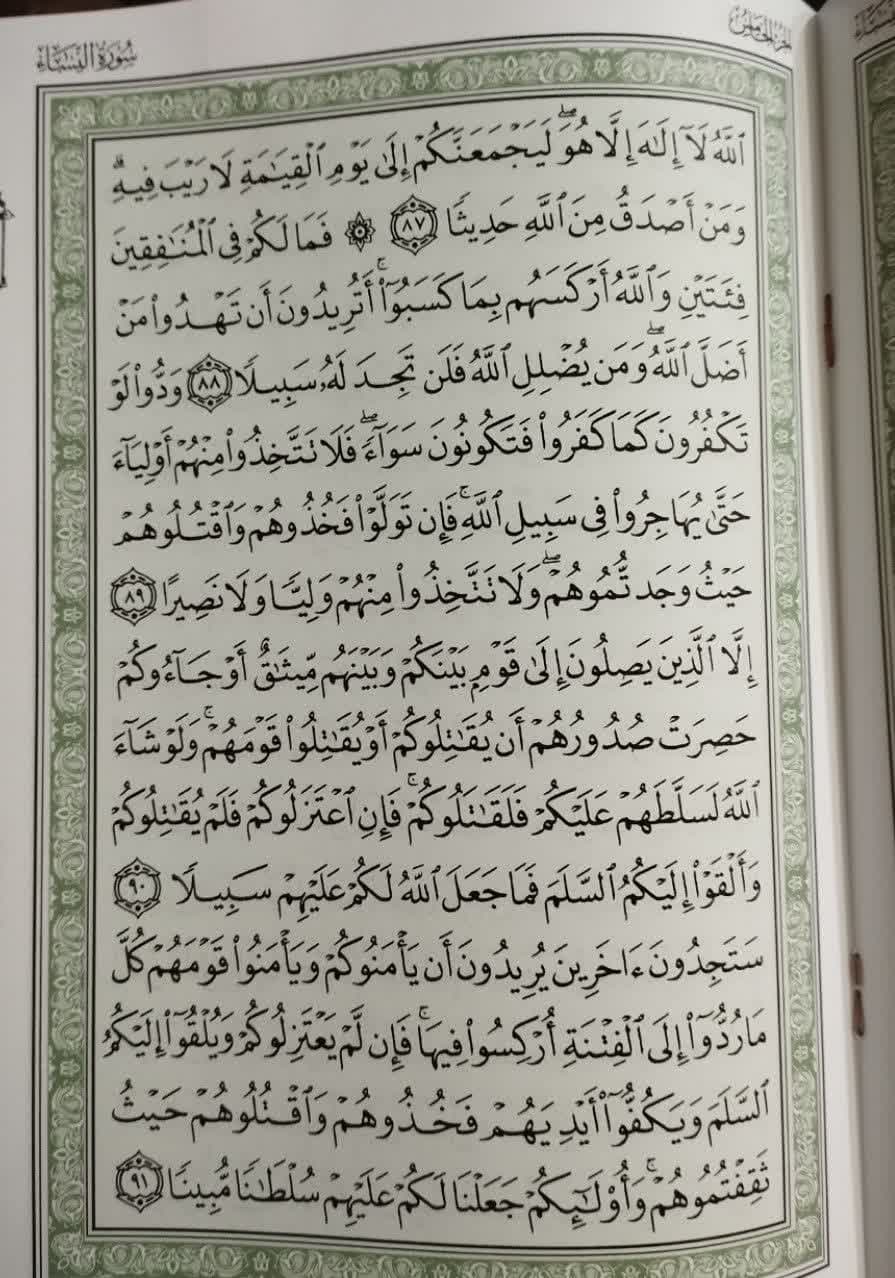 سُورَةُ النِّسَاءِ
الجُزْءُ الخَامِسُ
ٱللَّهُ لَآ إِلَٰهَ إِلَّا هُوَۖ لَيَجْمَعَنَّكُمْ إِلَىٰ يَوْمِ ٱلْقِيَٰمَةِ لَا رَيْبَ فِيهِۗ
وَمَنْ أَصْدَقُ مِنَ ٱللَّهِ حَدِيثًا ٨٧ ۞ فَمَا لَكُمْ فِى ٱلْمُنَٰفِقِينَ
فِئَتَيْنِ وَٱللَّهُ أَرْكَسَهُم بِمَا كَسَبُوٓا۟ۚ أَتُرِيدُونَ أَن تَهْدُوا۟ مَنْ
أَضَلَّ ٱللَّهُۖ وَمَن يُضْلِلِ ٱللَّهُ فَلَن تَجِدَ لَهُۥ سَبِيلًا ٨٨ وَدُّوا۟ لَوْ
تَكْفُرُونَ كَمَا كَفَرُوا۟ فَتَكُونُونَ سَوَآءًۖ فَلَا تَتَّخِذُوا۟ مِنْهُمْ أَوْلِيَآءَ
حَتَّىٰ يُهَاجِرُوا۟ فِى سَبِيلِ ٱللَّهِۚ فَإِن تَوَلَّوْا۟ فَخُذُوهُمْ وَٱقْتُلُوهُمْ
حَيْثُ وَجَدتُّمُوهُمْۖ وَلَا تَتَّخِذُوا۟ مِنْهُمْ وَلِيًّا وَلَا نَصِيرًا ٨٩
إِلَّا ٱلَّذِينَ يَصِلُونَ إِلَىٰ قَوْمٍۭ بَيْنَكُمْ وَبَيْنَهُم مِّيثَٰقٌ أَوْ جَآءُوكُمْ
حَصِرَتْ صُدُورُهُمْ أَن يُقَٰتِلُوكُمْ أَوْ يُقَٰتِلُوا۟ قَوْمَهُمْۚ وَلَوْ شَآءَ
ٱللَّهُ لَسَلَّطَهُمْ عَلَيْكُمْ فَلَقَٰتَلُوكُمْۚ فَإِنِ ٱعْتَزَلُوكُمْ فَلَمْ يُقَٰتِلُوكُمْ
وَأَلْقَوْا۟ إِلَيْكُمُ ٱلسَّلَمَ فَمَا جَعَلَ ٱللَّهُ لَكُمْ عَلَيْهِمْ سَبِيلًا ٩٠
سَتَجِدُونَ ءَاخَرِينَ يُرِيدُونَ أَن يَأْمَنُوكُمْ وَيَأْمَنُوا۟ قَوْمَهُمْ كُلَّ
مَا رُدُّوٓا۟ إِلَى ٱلْفِتْنَةِ أُرْكِسُوا۟ فِيهَاۚ فَإِن لَّمْ يَعْتَزِلُوكُمْ وَيُلْقُوٓا۟ إِلَيْكُمُ
ٱلسَّلَمَ وَيَكُفُّوٓا۟ أَيْدِيَهُمْ فَخُذُوهُمْ وَٱقْتُلُوهُمْ حَيْثُ
ثَقِفْتُمُوهُمْۚ وَأُو۟لَٰٓئِكُمْ جَعَلْنَا لَكُمْ عَلَيْهِمْ سُلْطَٰنًا مُّبِينًا ٩١